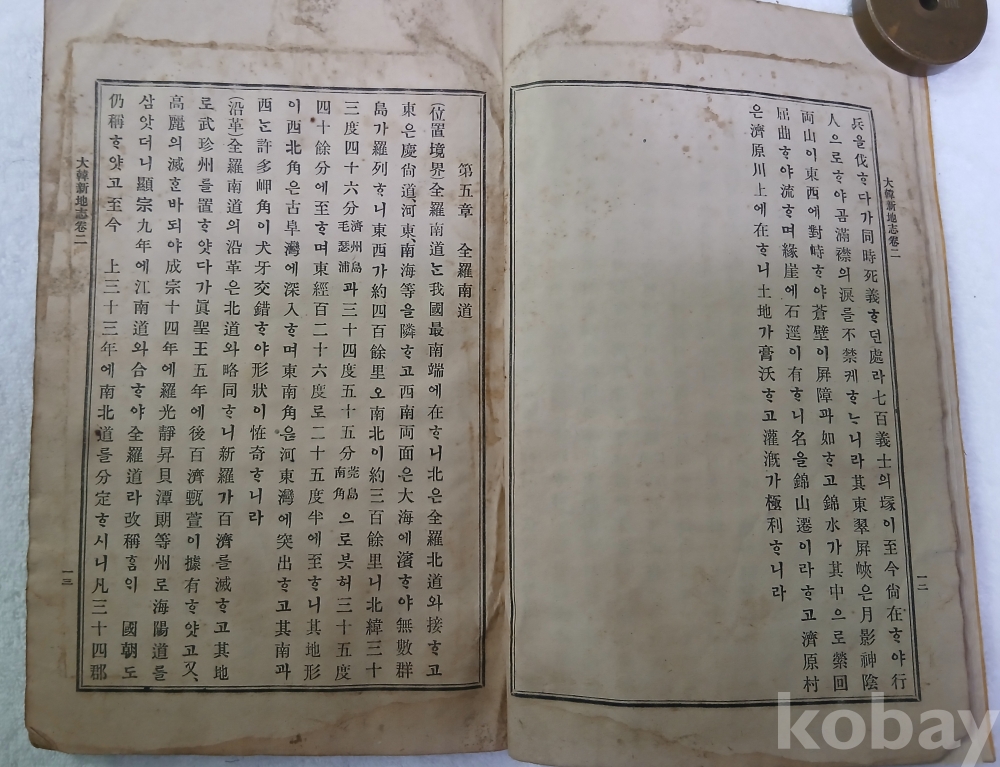 大韓新地志卷二
一二
兵을伐ᄒᆞ다가同時死義ᄒᆞ던處라七百義士의塚이至今尙在ᄒᆞ야行
人으로ᄒᆞ야곰滿襟의淚를不禁케ᄒᆞᄂᆞ니라其東翠屛峽은月影神陰
両山이東西에對峙ᄒᆞ야蒼壁이屛障과如ᄒᆞ고錦水가其中으로縈回
屈曲ᄒᆞ야流ᄒᆞ며緣崖에石逕이有ᄒᆞ니名을錦山遷이라ᄒᆞ고濟原村
은濟原川上에在ᄒᆞ니土地가膏沃ᄒᆞ고灌漑가極利ᄒᆞ니라
第五章 全羅南道
(位置境界)全羅南道ᄂᆞᆫ我國最南端에在ᄒᆞ니北은全羅北道와接ᄒᆞ고
東은慶尙道、河東、南海等을隣ᄒᆞ고西南両面은大海에濱ᄒᆞ야無數群
島가羅列ᄒᆞ니東西가約四百餘里오南北이約三百餘里니北緯三十
三度四十六分濟州島毛瑟浦과三十四度五十五分莞島南角으로븟허三十五度
四十餘分에至ᄒᆞ며東經百二十六度로二十五度半에至ᄒᆞ니其地形
이西北角은古阜灣에深入ᄒᆞ며東南角은河東灣에突出ᄒᆞ고其南과
西ᄂᆞᆫ許多岬角이犬牙交錯ᄒᆞ야形狀이怪奇ᄒᆞ니라
(沿革)全羅南道의沿革은北道와略同ᄒᆞ니新羅가百濟를滅ᄒᆞ고其地
로武珍州를置ᄒᆞ얏다가眞聖王五年에後百濟甄萱이據有ᄒᆞ얏고又、
高麗의滅ᄒᆞᆫ바되야成宗十四年에羅光靜昇貝潭朗等州로海陽道를
삼앗더니顯宗九年에江南道와合ᄒᆞ야全羅道라改稱ᄒᆞᆷᄋᆡ 國朝도
仍稱ᄒᆞ얏고至今 上三十三年에南北道를分定ᄒᆞ시니凡三十四郡
大韓新地志卷二
一三
kobay